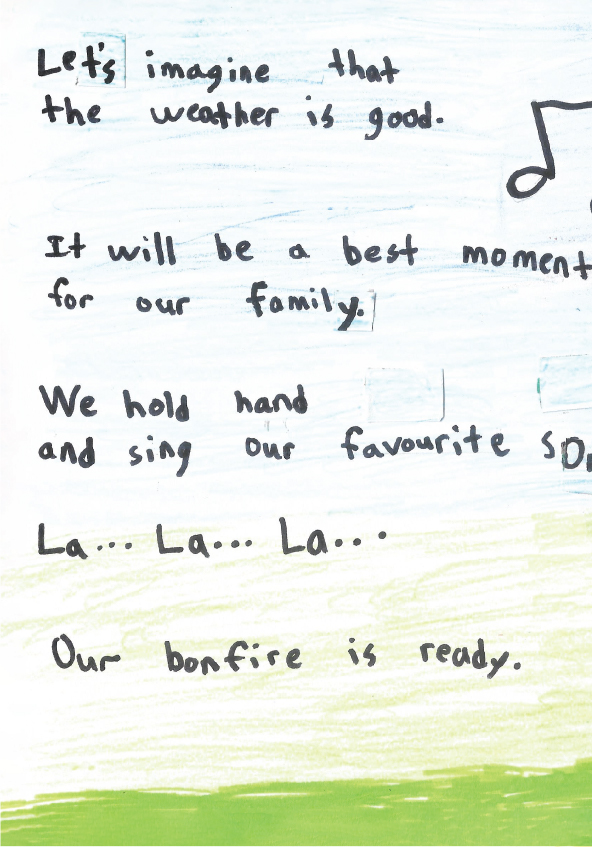 Let's imagine that
the weather is good.
It will be a best moment
for our family.
We hold hand
and sing our favourite
La... La... La...
Our bonfire is ready.